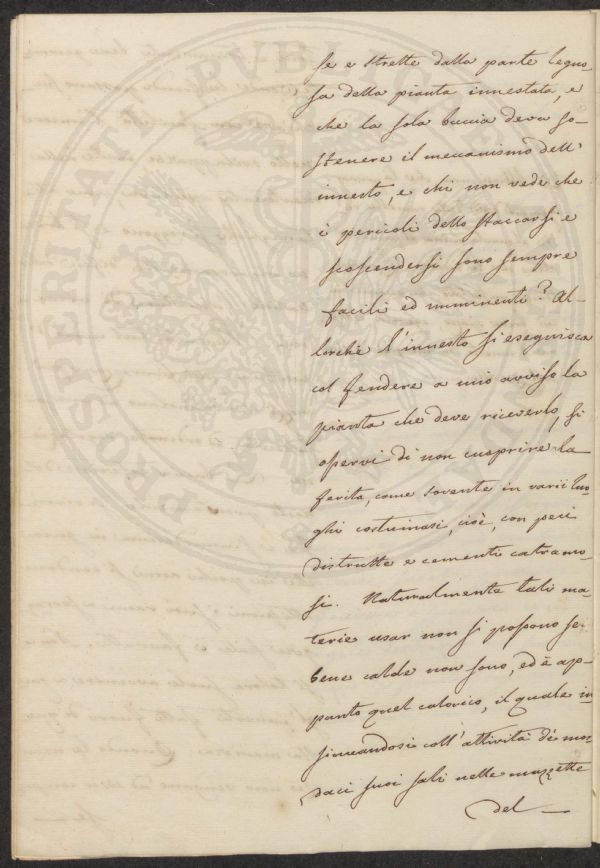 se e strette dalla parte legno-
sa della pianta innestata, e
che la sola buccia deve so-
stenere il meccanismo dell'
innesto, e chi non vede che
i pericoli dello staccarsi e
scoscendersi sono sempre
facili ed imminenti? Al-
lorchè l'innesto si eseguisca
col fendere a mio avviso la
pianta che deve riceverlo, si
osservi di non cuoprire la
ferita, come sovente in varii luo-
ghi costumasi, cioè, con peci
distrutte e cementi catramo-
si. Naturalmente tali ma-
terie usar non si possono se
bene calde non sono, ed è ap-
punto quel calorico, il quale in-
sinuandosi coll'attività de' mor-
daci suoi sali nelle mazzette
del
PROSPERITATI PUBLICAE